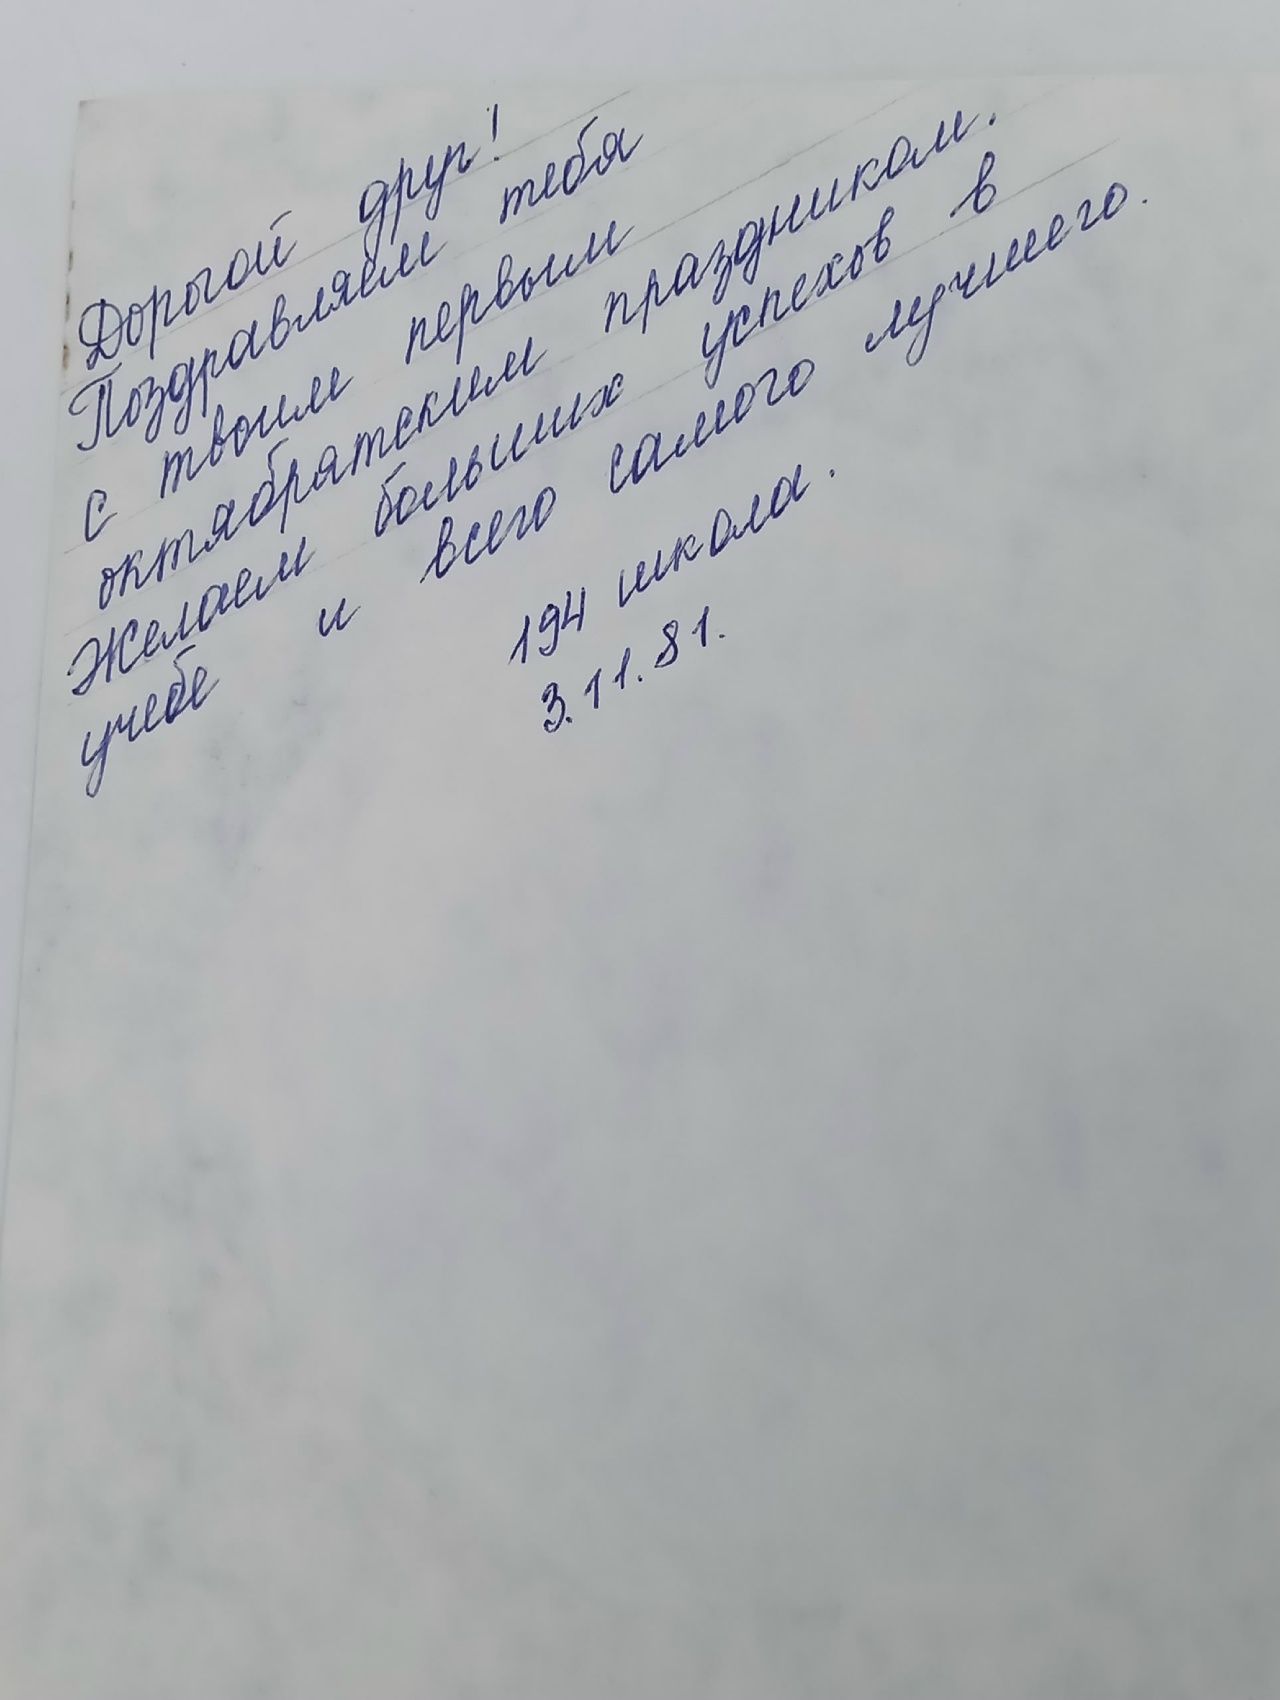 Дорогой друг!
Поздравляем тебя
с твоим первым
октябрятским праздником.
Желаем больших успехов в
учебе и всего самого лучшего.
194 школа.
3.11.81.